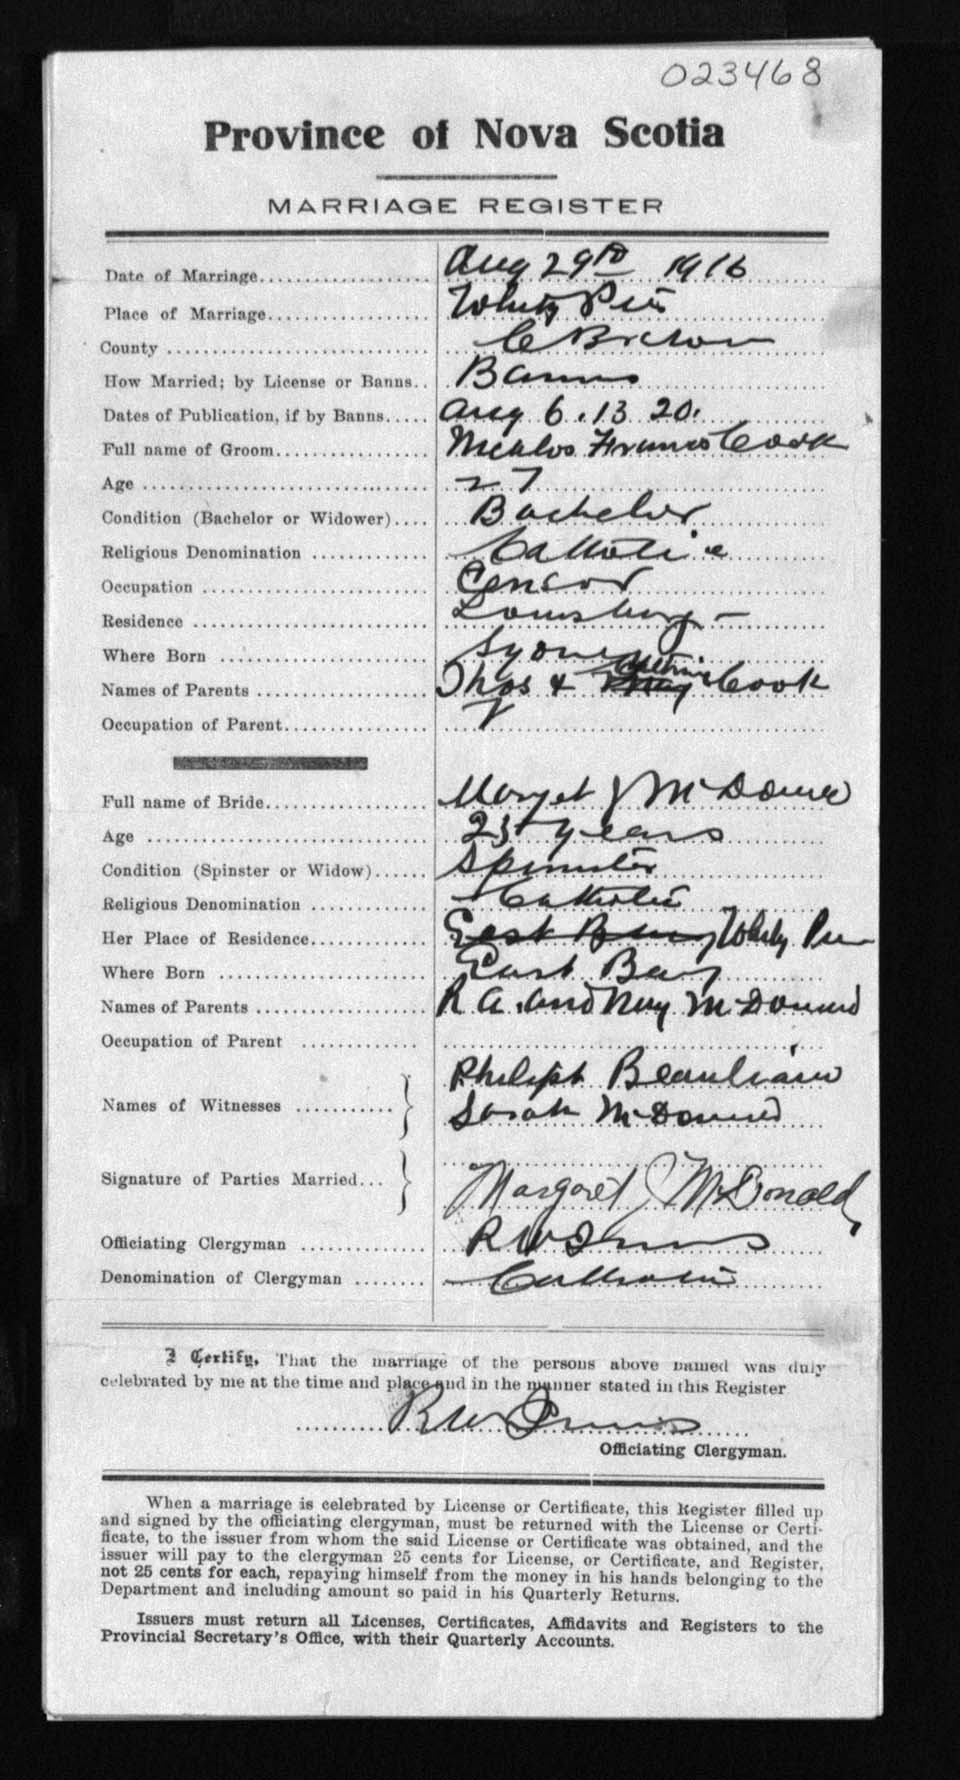 023468
Province of Nova Scotia
MARRIAGE REGISTER
Date of Marriage.................... Aug 29th 1916
Place of Marriage.................. Whitny Pier
County ............................ C Breton
How Married; by License or Banns.. Banns
Dates of Publication, if by Banns..... Aug 6. 13 20.
Full name of Groom................. Francis Cook
Age ............................... 27
Condition (Bachelor or Widower).... Bachelor
Religious Denomination ............ Catholic
Occupation ........................ Censor
Residence ......................... Louisburg
Where Born ....................... Sydney
Names of Parents .................. Thos & Cook
Occupation of Parent...............
Full name of Bride................. Marget J McDonald
Age ............................... 23 years
Condition (Spinster or Widow)...... Spinster
Religious Denomination ............ Catholic
Her Place of Residence............. East Bay Whitny Pier
Where Born ....................... East Bay
Names of Parents .................. R A. and McDonald
Occupation of Parent ..............
Philiph Beauliaiu
Names of Witnesses ...........
Sarah McDonald
Signature of Parties Married... Margaret J McDonald
Officiating Clergyman .............
Denomination of Clergyman ........ Catholic
I Certify, That the marriage of the persons above named was duly
celebrated by me at the time and place and in the manner stated in this Register
Officiating Clergyman.
When a marriage is celebrated by License or Certificate, this Register filled up
and signed by the officiating clergyman, must be returned with the License or Certi-
ficate, to the issuer from whom the said License or Certificate was obtained, and the
issuer will pay to the clergyman 25 cents for License, or Certificate, and Register,
not 25 cents for each, repaying himself from the money in his hands belonging to the
Department and including amount so paid in his Quarterly Returns.
Issuers must return all Licenses, Certificates, Affidavits and Registers to the
Provincial Secretary's Office, with their Quarterly Accounts.